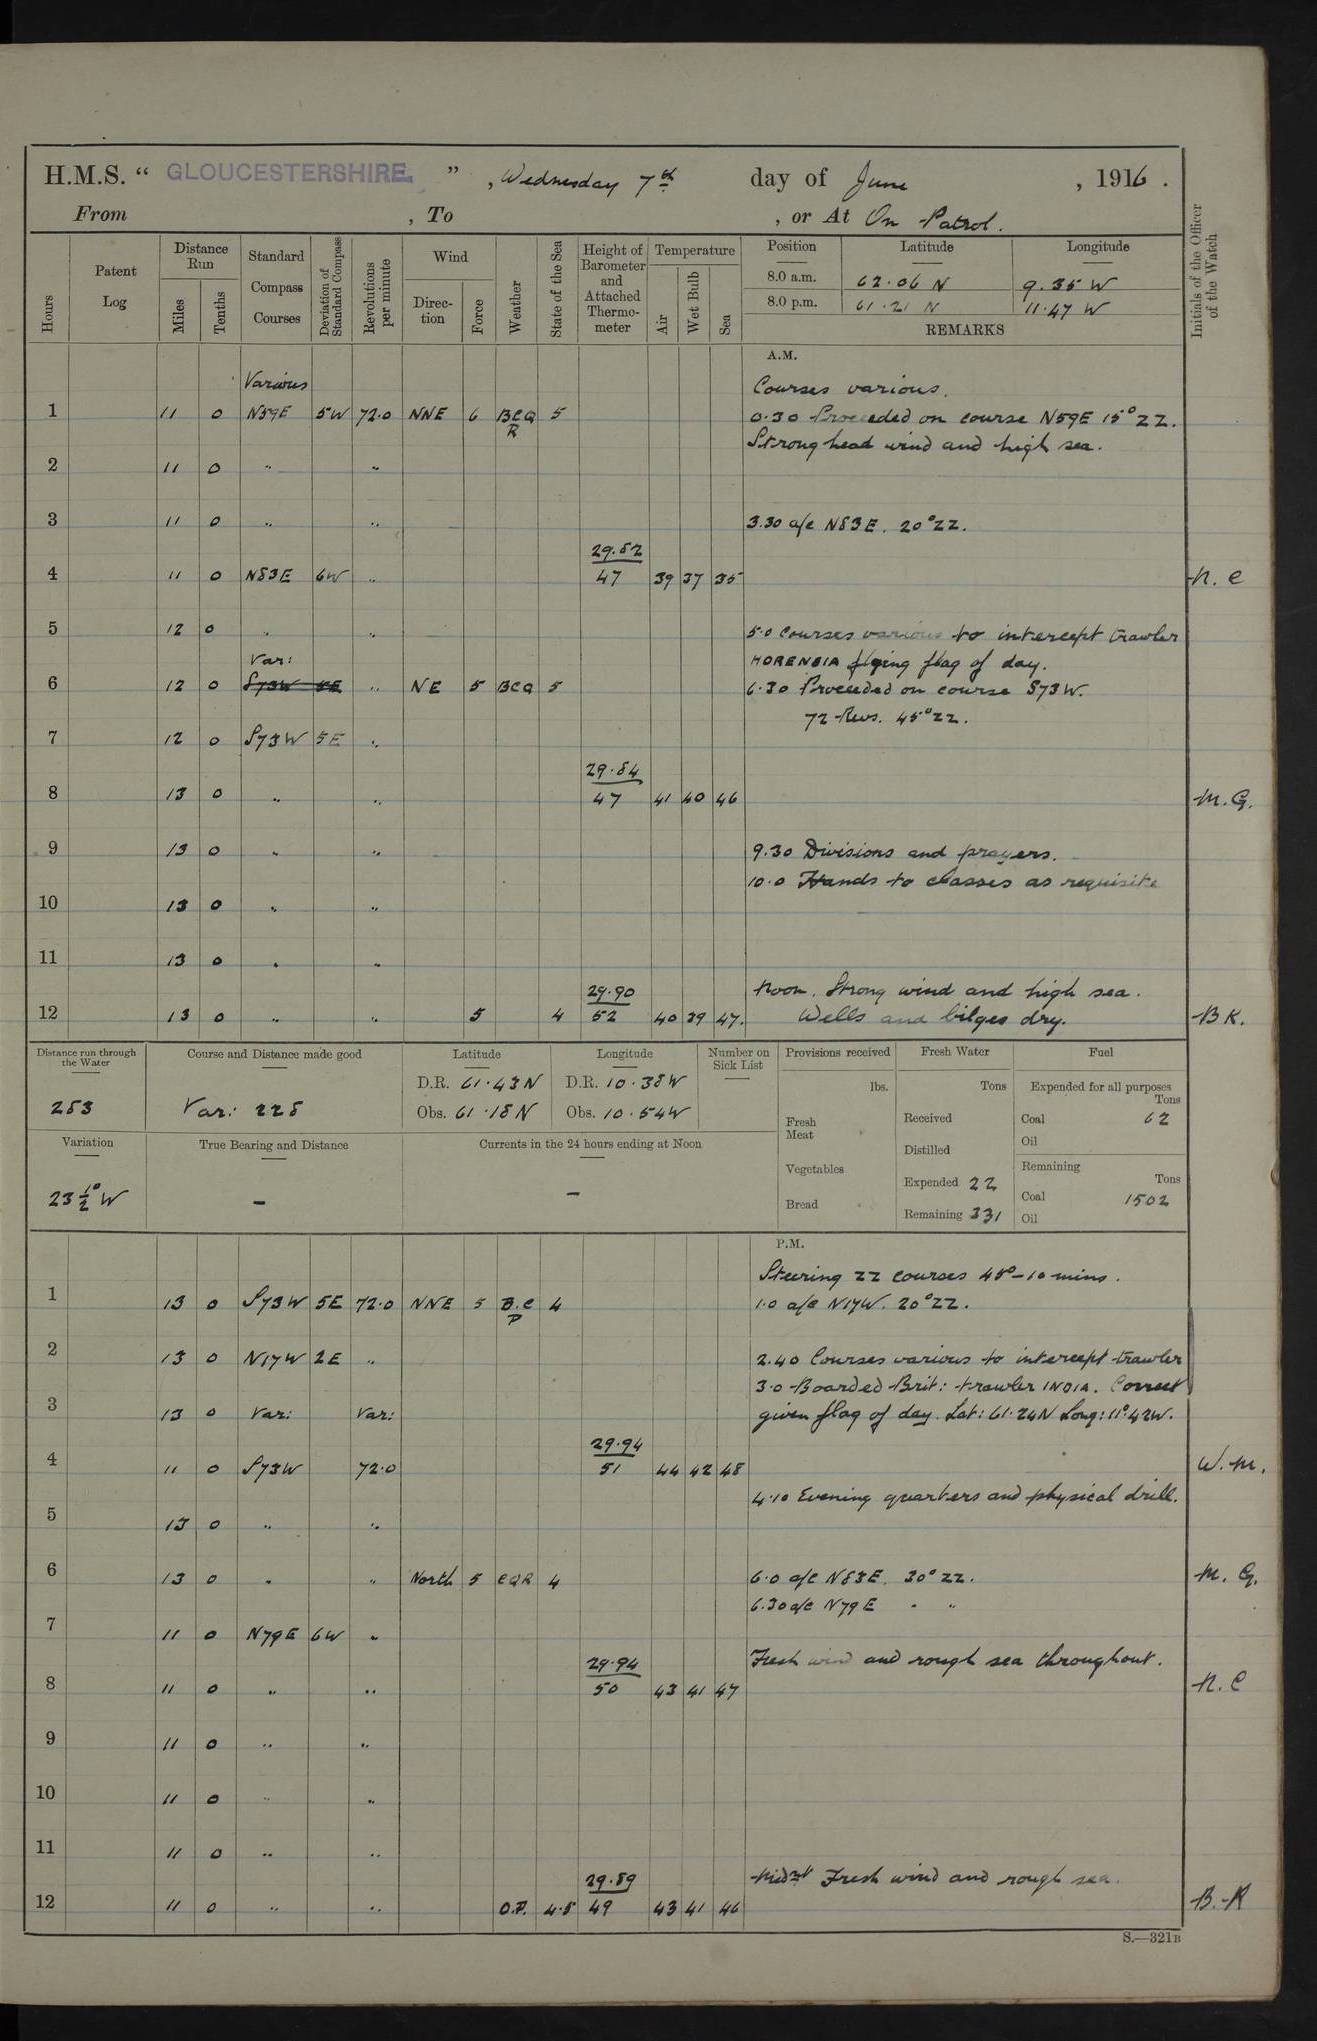 H.M.S. “ GLOUCESTERSHIRE. ” , Wednesday 7th day of June , 1916 .
From , To , or At On Patrol.
Hours
Patent Log
Distance Run
Miles
Tenths
Standard Compass Courses
Deviation of Standard Compass
Revolutions per minute
Wind
Direction
Force
Weather
State of the Sea
Height of Barometer and Attached Thermometer
Temperature
Air
Wet Bulb
Sea
Position Latitude Longitude
8.0 a.m. 62.06 N 9.35 W
8.0 p.m. 61.21 N 11.47 W
REMARKS
Initials of the Officer of the Watch
A.M.
Various Courses various.
1 11 0 N59E 5W 72.0 NNE 6 BCQ R 5 0.30 Proceeded on course N59E 15° ZZ.
Strong head wind and high sea.
2 11 0 " "
3 11 0 " " 3.30 a/c N83E. 20° ZZ.
29.82
4 11 0 N83E 6W " 47 39 37 35 N. C
5 12 0 " " 5.0 Courses various to intercept trawler
Var: HORENBIA flying flag of day.
6 12 0 S73W 5E " NE 5 BCQ 5 6.30 Proceeded on course S73W.
72 Revs. 45° ZZ.
7 12 0 S73W 5E "
29.84
8 13 0 " " 47 41 40 46 M. G.
9 13 0 " " 9.30 Divisions and prayers.
10.0 Hands to classes as requisite
10 13 0 " "
11 13 0 " "
29.90 Noon. Strong wind and high sea.
12 13 0 " " 5 4 52 40 39 47. Wells and bilges dry. B K.
Distance run through the Water
283
Course and Distance made good
Var: 228
Latitude
D.R. 61.43N
Obs. 61.18N
Longitude
D.R. 10.38W
Obs. 10.54W
Number on Sick List
Provisions received
lbs.
Fresh Meat
Vegetables
Bread
Fresh Water
Tons
Received
Distilled
Expended 22
Remaining 331
Fuel
Expended for all purposes
Tons
Coal 62
Oil
Remaining
Tons
Coal 1502
Oil
Variation
23 1/2° W
True Bearing and Distance
—
Currents in the 24 hours ending at Noon
—
P.M.
Steering ZZ courses 45°-10 mins.
1 13 0 S73W 5E 72.0 NNE 5 B.C P 4 1.0 a/c N17W. 20° ZZ.
2 13 0 N17W 2E " 2.40 Courses various to intercept trawler
3.0 Boarded Brit: trawler INDIA. Correct
3 13 0 Var: Var: given flag of day. Lat: 61.24N Long: 11°.42W.
29.94
4 11 0 S73W 72.0 51 44 42 48 W. M.
4.10 Evening quarters and physical drill.
5 13 0 " "
6 13 0 " " North 5 CQR 4 6.0 a/c N83E. 30° ZZ. M. G.
6.30 a/c N79E " "
7 11 0 N79E 6W "
29.94 Fresh wind and rough sea throughout.
8 11 0 " " 50 43 41 47 N. C
9 11 0 " "
10 11 0 " "
11 11 0 " "
29.89 Midnt Fresh wind and rough sea.
12 11 0 " " O.P. 4.5 49 43 41 46 B. K
S.—321B